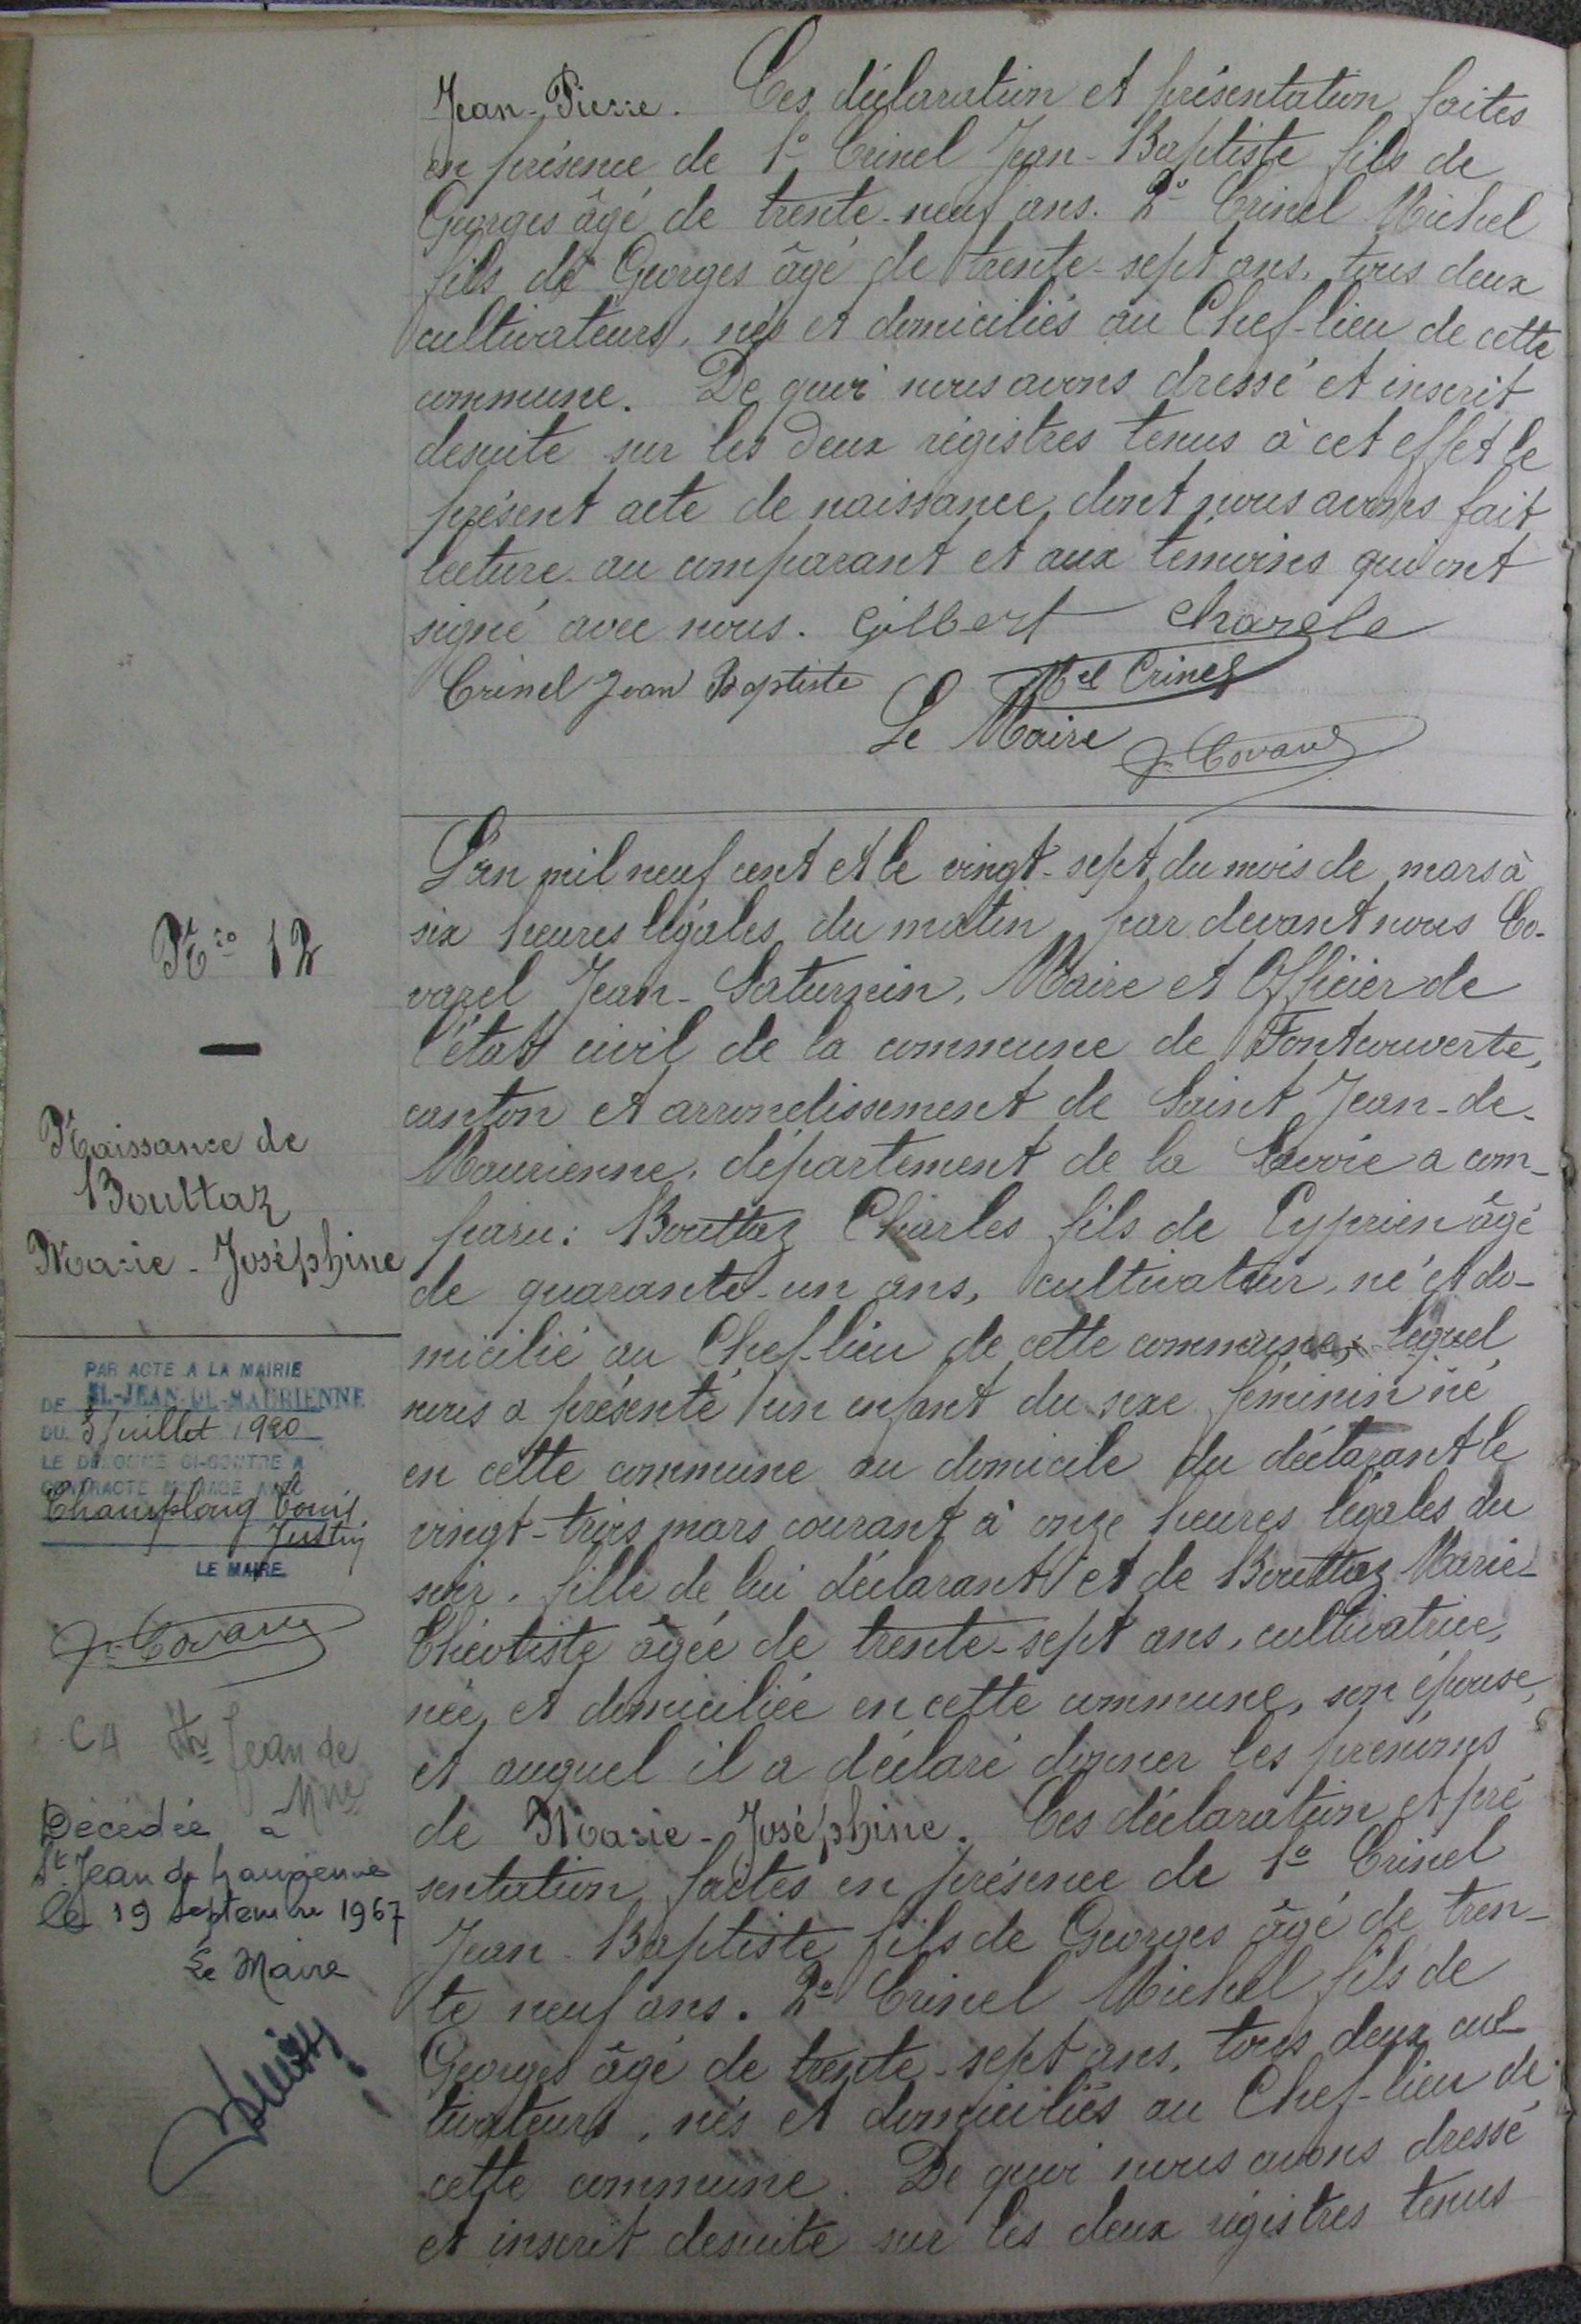 Jean-Pierre. Ces déclaration et présentation faites
en présence de 1° Crinel Jean-Baptiste fils de
Georges âgé de trente-neuf ans. 2° Crinel Michel
fils de Georges âgé de trente-sept ans, tous deux
cultivateurs, nés et domiciliés au Chef-lieu de cette
commune. De quoi nous avons dressé et inscrit
desuite sur les deux régistres tenus à cet effet le
présent acte de naissance, dont nous avons fait
lecture au comparant et aux témoins qui ont
signé avec nous. Gilbert Charele
Crinel Jean Baptiste Mel Crinel
Le Maire Jn Covarel
L'an mil neuf cent et le vingt-sept du mois de mars à
six heures légales du matin par devant nous Co-
varel Jean-Saturnin, Maire et Officier de
l'état civil de la commune de Fontcouverte,
canton et arrondissement de Saint Jean-de-
Maurienne, département de la Savoie a com-
paru: Bouttaz Charles fils de Cyprien âgé
de quarante-un ans, cultivateur, né et do-
micilié au Chef-lieu de cette commune, lequel
nous a présenté un enfant du sexe féminin né
en cette commune au domicile du déclarant le
vingt-trois mars courant à onze heures légales du
soir, fille de lui déclarant et de Bouttaz Marie-
Théotiste âgée de trente-sept ans, cultivatrice,
née et domiciliée en cette commune, son épouse,
et auquel il a déclaré donner les prénoms
de Marie-Joséphine. Ces déclaration et pré
sentation faites en présence de 1° Crinel
Jean-Baptiste fils de Georges âgé de tren-
te neuf ans. 2° Crinel Michel fils de
Georges âgé de trente-sept ans, tous deux cul
tivateurs, nés et domiciliés au Chef-lieu de
cette commune. De quoi nous avons dressé
et inscrit desuite sur les deux régistres tenus
N° 12
Naissance de
Bouttaz
Marie-Joséphine
PAR ACTE A LA MAIRIE
DE St-JEAN-DE-MAURIENNE
DU 3 Juillet 1920
LE DÉNOMMÉ CI-CONTRE A
CONTRACTÉ MARIAGE AVEC
Champlong Louis
Justin
LE MAIRE
Jn Covarel
Jean de
Mne
Décédée à
St Jean de Maurienne
le 19 Septembre 1967
Le Maire